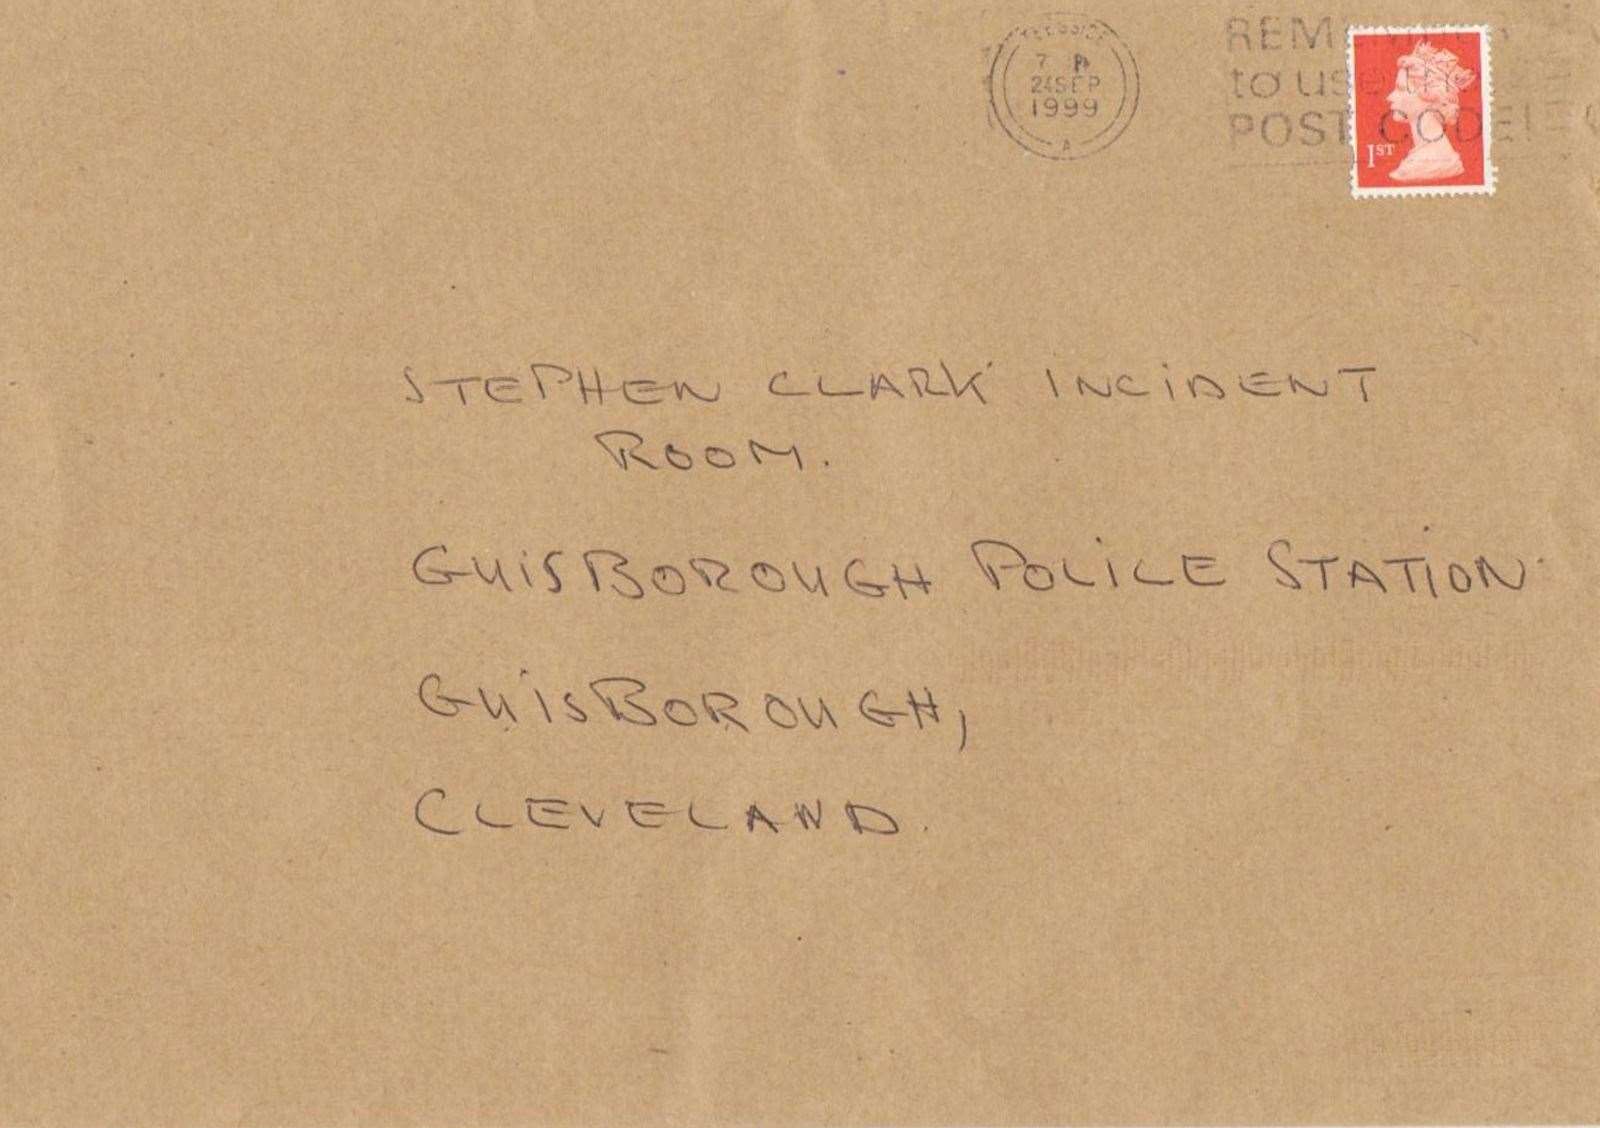 7 P
24 SEP
1999
A
to use the
POST CODE!
1ST
STEPHEN CLARK INCIDENT
ROOM.
GUISBOROUGH POLICE STATION
GUISBOROUGH,
CLEVELAND.